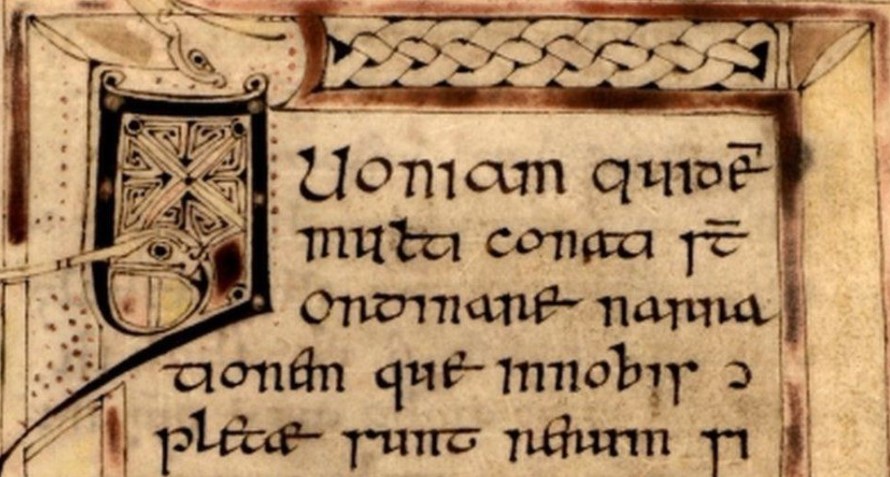 QUoniam quidē
multi conati st̄
ordinare narra
tionem que in nobis ɔ
pletæ sunt rerum si